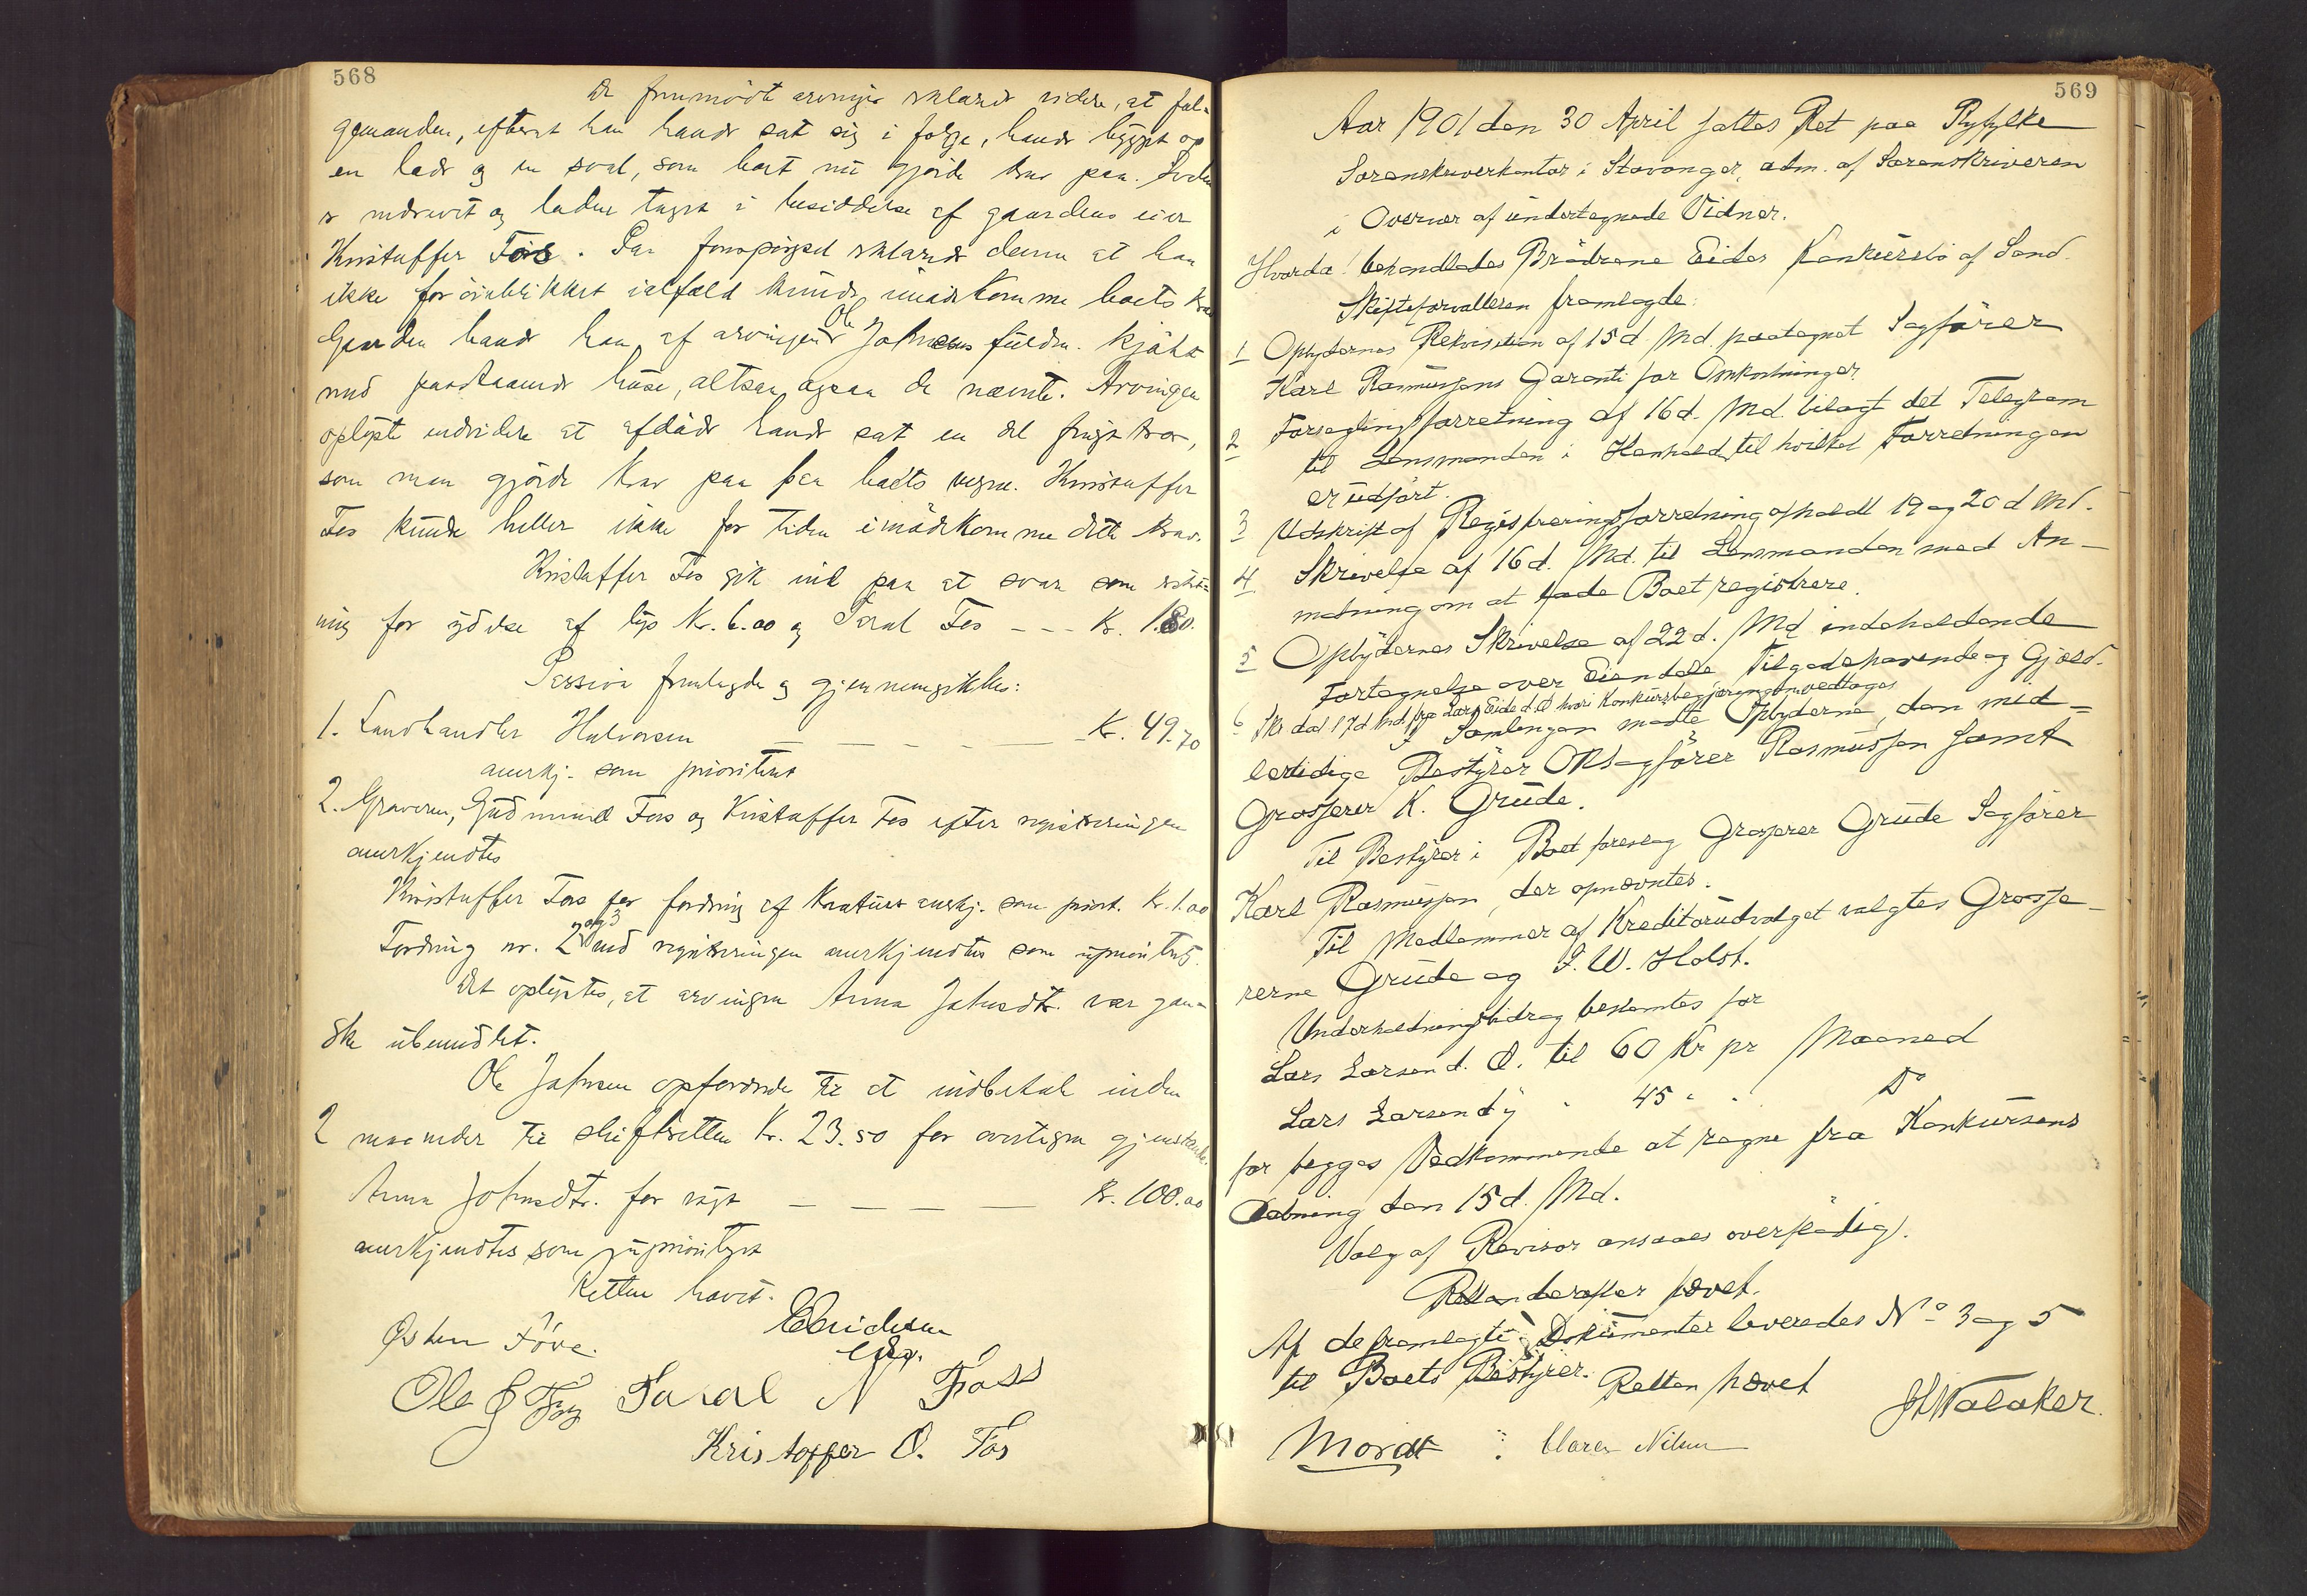 568
De fremmødte arvinger erklærede videre, at fol-
gemanden, efterat han havde sat sig i folge, havde bygget op
en lade og en sval, som boet nu gjorde krav paa. Svalen
er nedrevet og laden taget i besiddelse af gaardens eier
Kristoffer Fos. Paa forespørgsel erklærede denne at han
ikke for øieblikket ialfald kunde imødekomme boets krav
Gaarden havde han af arvingen Ole Johnsen kjøbt
med paastaaende huse, altsaa ogsaa de nævnte. Arvingen
oplyste endvidere at afdøde havde sat en del frugttrær,
som man gjorde krav paa paa boets vegne. Kristoffer
Fos kunde heller ikke for tiden imødekomme dette krav.
Kristoffer Fos gik ind paa at svare som erstat-
ning for ydelse af lys Kr. 6.00 og Taral Fos --- Kr. 1.80.
Passiva fremlagdes og gjennemgikkes:
1. Landhandler Halvorsen — — — — Kr. 49.70
anerkj. som prioritert
2. Graveren, Gudmund Fos og Kristoffer Fos efter registreringen
anerkjendtes
Kristoffer Fos for fordring af anerkj. som priort. Kr. 1.00
Fordring nr. 2 og 3 ved registreringen anerkjendtes som uprioritert.
Det oplystes, at arvingen Anna Johnsdtr. var gan-
ske ubemidlet.
Ole Johnsen opfordredes til at indbetale inden
2 maaneder til skifteretten Kr. 23.50 for overtagne gjenstande.
Anna Johnsdtr. for røgt — — — — Kr. 100.00
anerkjendtes som uprioritert
Retten hævet.
Østen Føve. E Eriksen
Ole J Fos Taral N Foss
Kristoffer O. Fos
569
Aar 1901 den 30 April sattes Ret paa Ryfylke
Sorenskriverkontor i Stavanger, adm. af Sorenskriveren
i Overvær af undertegnede Vidner.
Hvorda! behandledes Brødrene Eides Konkursbo af Sand.
Skifteforvalteren fremlagde:
1 Opbydernes Rekvisition af 15 d. Md. paategnet Sagfører
Karl Rasmussens Garanti for Omkostninger.
2 Forseglingsforretning af 16 d. Md. bilagt det Telegram
til Lensmanden i Henhold til hvilket Forretningen
er udført.
3 Udskrift af Registreringsforretning afholdt 19 og 20 d. Md.
4 Skrivelse af 16 d. Md. til Lensmanden med An-
modning om at lade Boet registrere.
5 Opbydernes Skrivelse af 22 d. Md. indeholdende
Fortegnelse over Eiendele, Tilgodehavende og Gjæld.
6 Skr. dat 17 d. Md. fra Lars Eide d.Æ hvori Konkursbegjæringen vedtages
I Samlingen mødte Opbyderne, den mid-
lertidige Bestyrer ORsagfører Rasmussen samt
Grosserer K. Grude.
Til Bestyrer i Boet foreslog Grosserer Grude Sagfører
Karl Rasmussen, der opnævntes.
Til Medlemmer af Kreditorudvalget valgtes Grosse-
rerne Grude og I. W. Holst.
Underholdningsbidrag bestemtes for
Lars Larsen d. Æ. til 60 Kr pr Maaned
Lars Larsen d y " 45 " " Do
for begges Vedkommende at regne fra Konkursens
Aabning den 15 d. Md.
Valg af Revisor ansaaes overflødig.
Retten derefter hævet.
Af de fremlagte Dokumenter leveredes No 3 og 5
til Boets Bestyrer. Retten hævet
JHWalaker.
Mordt : Maren Nilsen